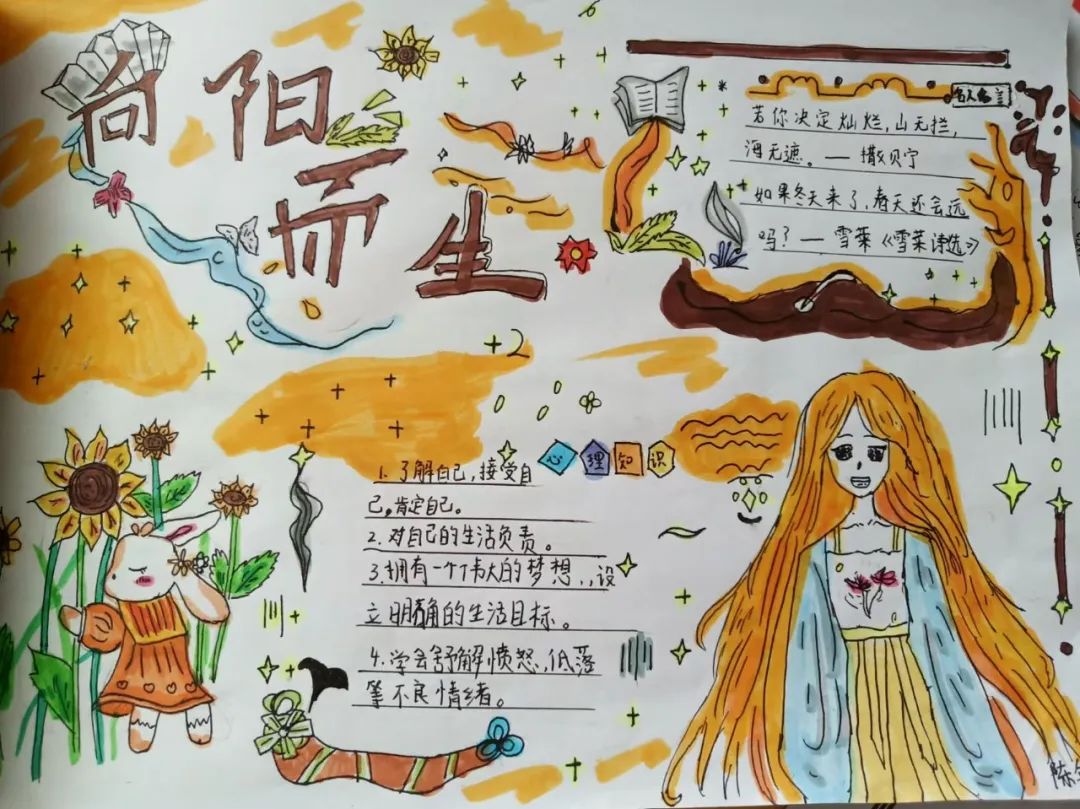 向阳
而生
名人名言
若你决定灿烂,山无拦,
海无遮。— 撒贝宁
如果冬天来了,春天还会远
吗?— 雪莱《雪莱诗选》
心理知识
1. 了解自己,接受自
己,肯定自己。
2. 对自己的生活负责。
3. 拥有一个伟大的梦想,,设
立明确的生活目标。
4. 学会舒解愤怒,低落
等不良情绪。
陈